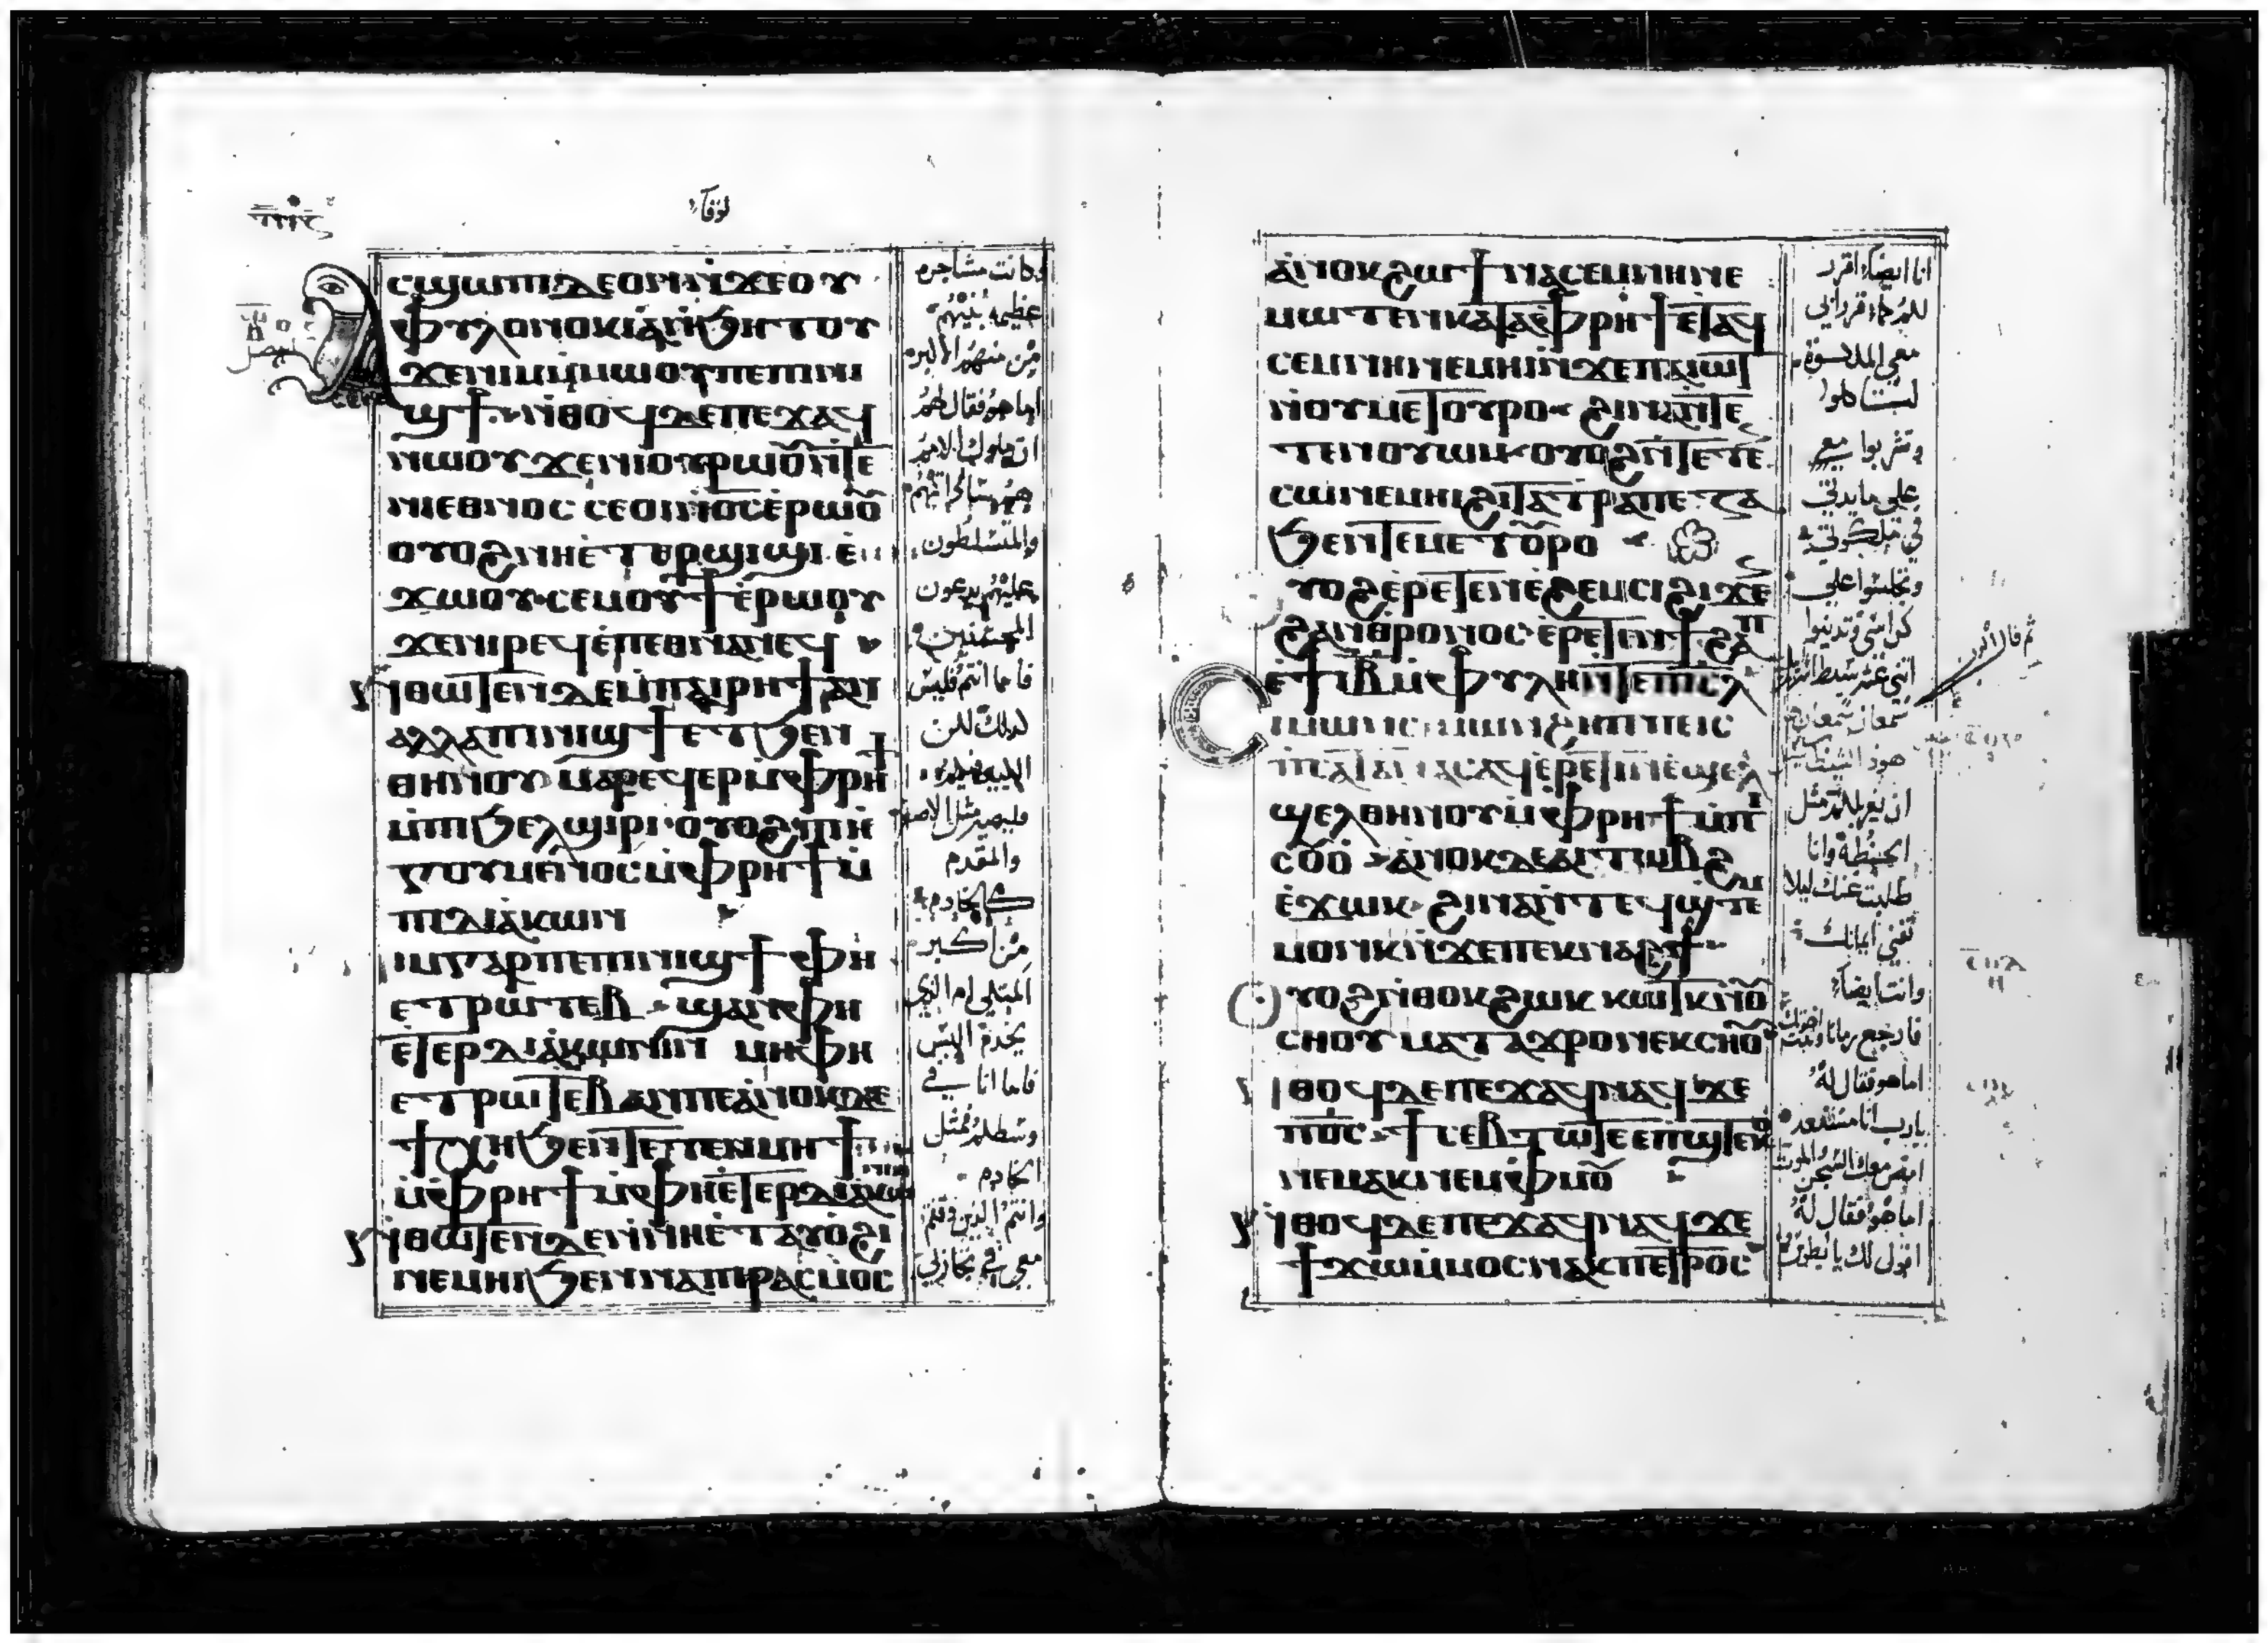 لوقا
ⲁⲥϣⲱⲡⲓ ⲇⲉ ⲟⲛ ⲛ̀ϫⲉ ⲟⲩ
ⲫⲩⲗⲟⲛⲟⲕⲓⲁ ⲛ̀ϧⲏⲧⲟⲩ
ϫⲉ ⲛⲓⲙ ⲙ̀ⲙⲱⲟⲩ ⲡⲉ ⲡⲓⲛⲓ
ϣϯ ⲛ̀ⲑⲟϥ ⲇⲉ ⲡⲉϫⲁϥ
ⲛⲱⲟⲩ ϫⲉ ⲛⲓⲟⲩⲣⲱⲟⲩ ⲛ̀ⲧⲉ
ⲛⲓⲉⲑⲛⲟⲥ ⲥⲉⲟⲓ ⲛ̀ⲟ̅ⲥ̅ ⲉ̀ⲣⲱⲟⲩ
ⲟⲩⲟϩ ⲛⲏ ⲉⲧⲉⲣϣⲓϣⲓ ⲉ̀
ϫⲱⲟⲩ ⲥⲉⲙⲟⲩϯ ⲉ̀ⲣⲱⲟⲩ
ϫⲉ ⲛⲓⲣⲉϥⲉⲣⲡⲉⲑⲛⲁⲛⲉϥ
ⲛ̀ⲑⲱⲧⲉⲛ ⲇⲉ ⲙ̀ⲡⲁⲓⲣⲏϯ ⲁⲛ
ⲁⲗⲗⲁ ⲡⲓⲛⲓϣϯ ⲉⲧϧⲉⲛ
ⲑⲏⲛⲟⲩ ⲙⲁⲣⲉϥⲉⲣ ⲙ̀ⲫⲣⲏϯ
ⲙ̀ⲡⲓϧⲉⲗϣⲓⲣⲓ ⲟⲩⲟϩ ⲡⲓϩⲏ
ⲅⲟⲩⲙⲉⲛⲟⲥ ⲙ̀ⲫⲣⲏϯ ⲙ̀
ⲡⲓⲇⲓⲁⲕⲱⲛ
ⲛⲓⲙ ⲅⲁⲣ ⲡⲉ ⲡⲓⲛⲓϣϯ ⲫⲏ
ⲉⲧⲣⲱⲧⲉⲃ ϣⲁⲛ ⲫⲏ
ⲉⲧⲉⲣⲇⲓⲁⲕⲱⲛⲓⲛ ⲙⲏ ⲫⲏ
ⲉⲧⲣⲱⲧⲉⲃ ⲁⲛ ⲡⲉ ⲁ̀ⲛⲟⲕ ⲇⲉ
ϯⲭⲏ ϧⲉⲛ ⲧⲉⲧⲉⲛⲙⲏϯ
ⲙ̀ⲫⲣⲏϯ ⲙ̀ⲫⲏ ⲉⲧⲉⲣⲇⲓⲁⲕⲱⲛⲓⲛ
ⲛ̀ⲑⲱⲧⲉⲛ ⲇⲉ ⲛ̀ⲛⲏ ⲉ̀ⲧⲁⲩⲟϩⲓ
ⲛⲉⲙⲏⲓ ϧⲉⲛ ⲛⲁⲡⲓⲣⲁⲥⲙⲟⲥ
وكانت مشاجره
عظيمه بينهم
من منهم الاكبر
اما هو فقال لهم
ان ملوك الامم
هم ساداتهم
والمتسلطون
عليهم يدعون
المحسنين
فاما انتم فليس
كذلك لكن
الكبير فيكم
فليصير مثل الاصغر
والمقدم
كالخادم
من اكبر
المتكي ام الذي
يخدم اليس
فاما انا في
وسطكم مثل
الخادم
وانتم الذين وقفتم
معي في تجاربي
ⲁ̀ⲛⲟⲕ ϩⲱ ϯⲛⲁⲥⲉⲙⲛⲏ ⲛⲉ
ⲙⲱⲧⲉⲛ ⲕⲁⲧⲁ ⲫⲣⲏϯ ⲉ̀ⲧⲁϥ
ⲥⲉⲙⲛⲏ ⲛⲉⲙⲏⲓ ⲛ̀ϫⲉ ⲡⲁⲓⲱⲧ
ⲛ̀ⲟⲩⲙⲉⲧⲟⲩⲣⲟ ϩⲓⲛⲁ ⲛ̀ⲧⲉ
ⲧⲉⲛⲟⲩⲱⲙ ⲟⲩⲟϩ ⲛ̀ⲧⲉⲧⲉⲛ
ⲥⲱ ⲛⲉⲙⲏⲓ ϩⲓ ⲧⲁⲧⲣⲁⲡⲉⲍⲁ
ϧⲉⲛ ⲧⲁⲙⲉⲧⲟⲩⲣⲟ
ⲟⲩⲟϩ ⲉⲣⲉⲧⲉⲛⲉ̀ϩⲉⲙⲥⲓ ϩⲓϫⲉⲛ
ϩⲁⲛⲑⲣⲟⲛⲟⲥ ⲉⲣⲉⲧⲉⲛϯϩⲁⲡ
ⲉ̀ϯⲓ̅ⲃ̅ ⲙ̀ⲫⲩⲗⲏ ⲛ̀ⲧⲉ ⲡⲓⲥ̅ⲗ̅
ⲥⲓⲙⲱⲛ ⲥⲓⲙⲱⲛ ϩⲏⲡⲡⲉ ⲓⲥ
ⲡⲥⲁⲧⲁⲛⲁⲥ ⲁϥⲉⲣⲉ̀ⲧⲓⲛ ⲉ̀ϣⲉⲗ
ϣⲉⲗ ⲑⲏⲛⲟⲩ ⲙ̀ⲫⲣⲏϯ ⲙ̀ⲡⲓ
ⲥⲟⲩⲟ ⲁ̀ⲛⲟⲕ ⲇⲉ ⲁⲓⲧⲱⲃϩ
ⲉ̀ϫⲱⲕ ϩⲓⲛⲁ ⲛ̀ⲧⲉϥϣⲧⲉⲙ
ⲙⲟⲩⲛⲕ ⲛ̀ϫⲉ ⲡⲉⲕⲛⲁϩϯ
ⲟⲩⲟϩ ⲛ̀ⲑⲟⲕ ϩⲱⲕ ⲕⲱⲧⲕ ⲛ̀ⲟⲩ
ⲥⲏⲟⲩ ⲙⲁⲧⲁϫⲣⲟ ⲛⲉⲕⲥⲛⲏⲟⲩ
ⲛ̀ⲑⲟϥ ⲇⲉ ⲡⲉϫⲁϥ ⲛⲁϥ ϫⲉ
ⲡ̅ⲟ̅ⲥ̅ ϯⲥⲉⲃⲧⲱⲧ ⲉ̀ⲉ ⲉ̀ⲡϣⲧⲉⲕⲟ
ⲛⲉⲙⲁⲕ ⲛⲉⲙ ⲫⲙⲟⲩ
ⲛ̀ⲑⲟϥ ⲇⲉ ⲡⲉϫⲁϥ ⲛⲁϥ ϫⲉ
ϯϫⲱ ⲙ̀ⲙⲟⲥ ⲛⲁⲕ ⲡⲉⲧⲣⲟⲥ
انا ايضا اقرر
لكم كما قرر ابي
معي الملكوت
لتاكلوا
وتشربوا معي
علي مايدتي
في ملكوتي
وتجلسوا علي
كراسي وتدينوا
اثني عشر سبط
سمعان سمعان
هوذا الشيطان
ان يغربلكم مثل
الحنطه وانا
طلبت عنك ليلا
يفني ايمانك
وانت ايضا
فارجع زمانا وثبت اخوتك
اما هو فقال له
يارب انا مستعد
امض معك السجن والموت
اما هو فقال له
اقول لك يا بطرس
ثم قال الرب